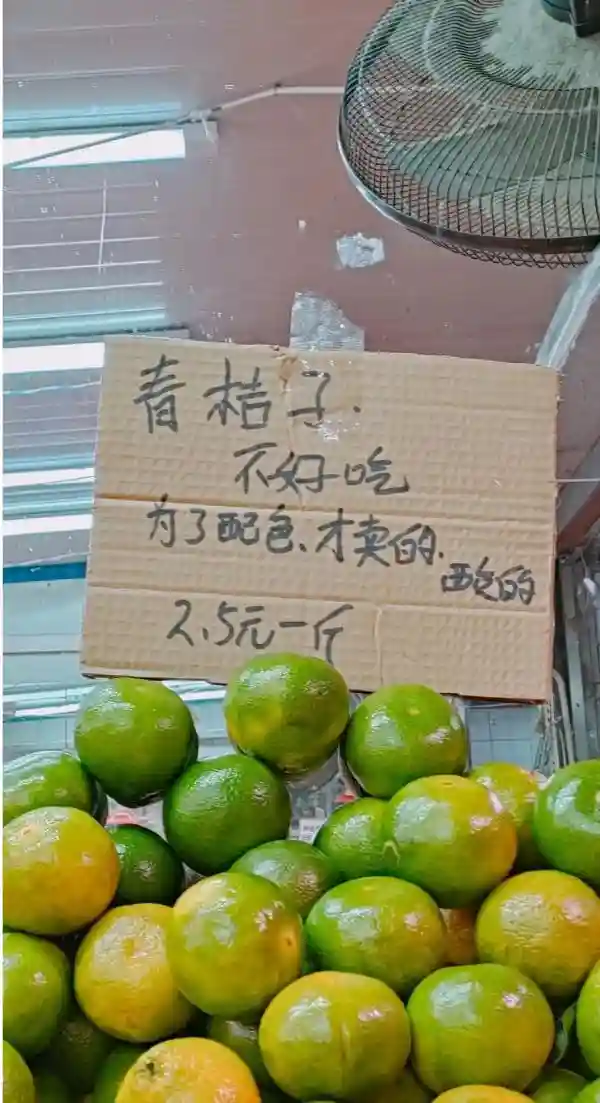 青桔子.
不好吃
为了配色、才卖的.
酸的
2.5元一斤